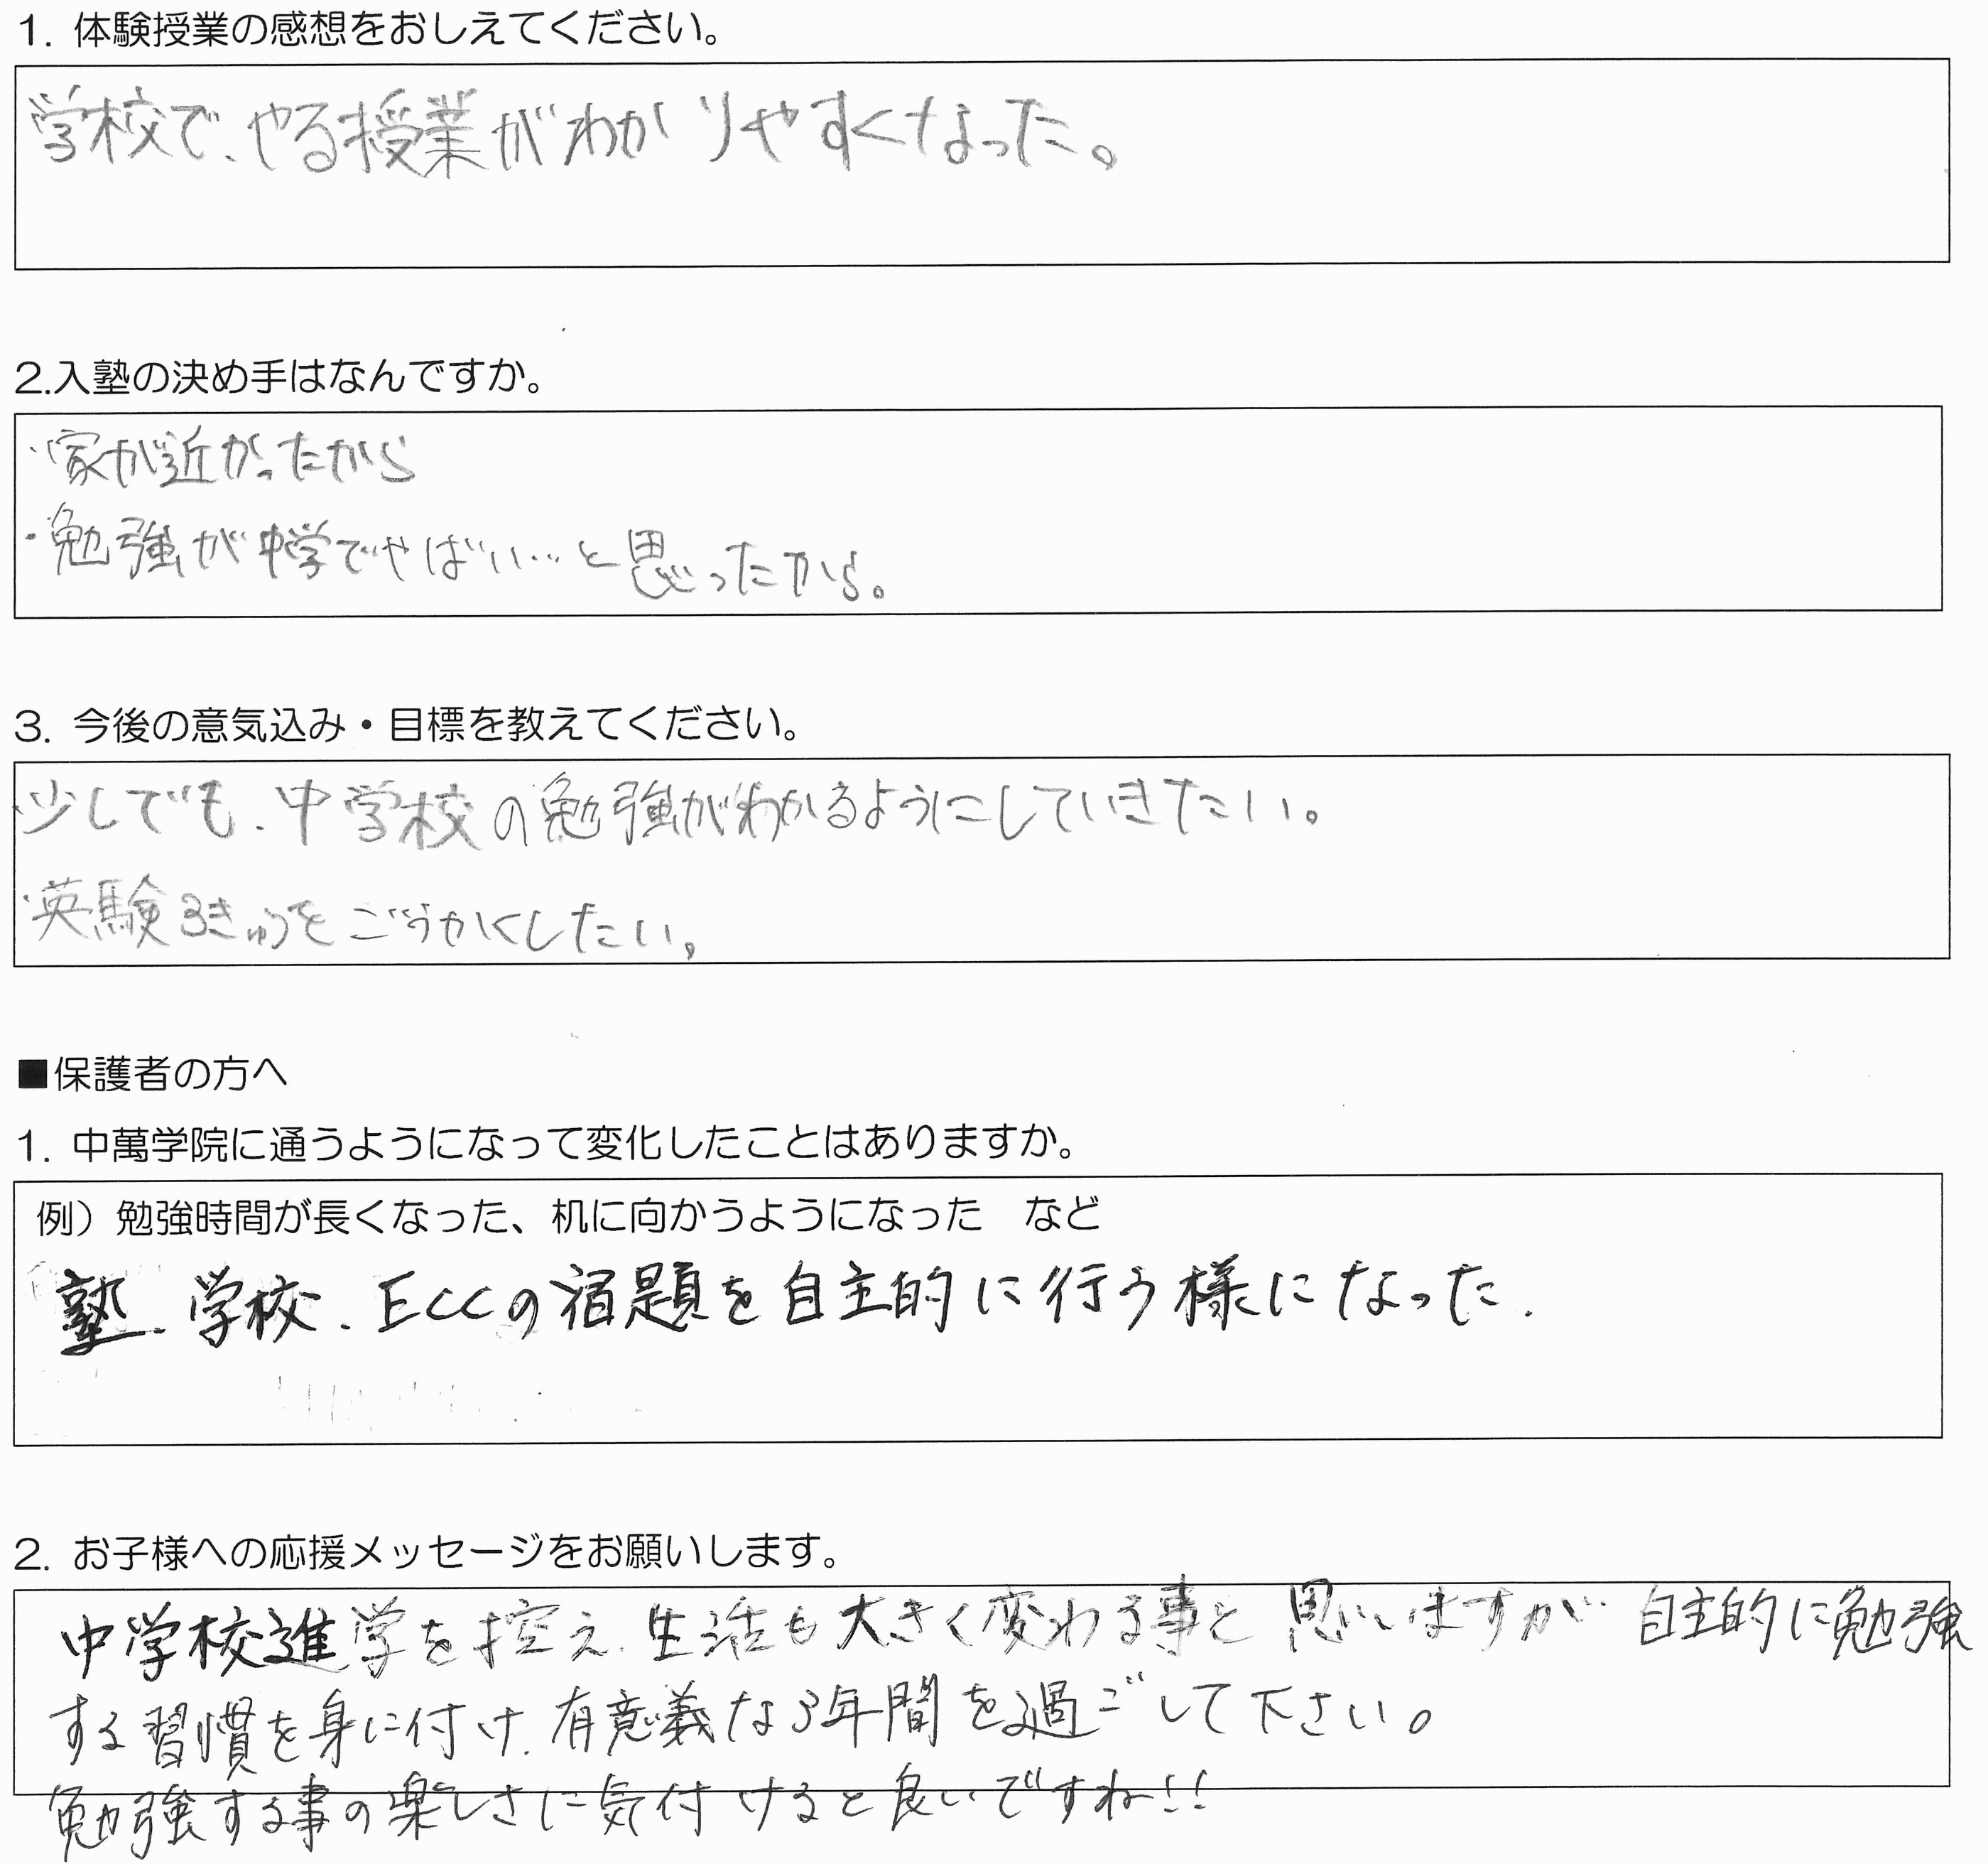 1. 体験授業の感想をおしえてください。
学校で、やる授業がわかりやすくなった。
2.入塾の決め手はなんですか。
・家が近かったから
・勉強が中学でやばい…と思ったから。
3. 今後の意気込み・目標を教えてください。
・少しでも、中学校の勉強がわかるようにしていきたい。
・英験3きゅうをごうかくしたい。
■保護者の方へ
1. 中萬学院に通うようになって変化したことはありますか。
例）勉強時間が長くなった、机に向かうようになった　など
塾、学校、ECCの宿題を自主的に行う様になった.
2. お子様への応援メッセージをお願いします。
中学校進学を控え、生活も大きく変わる事と思いますが 自主的に勉強
する習慣を身に付け、有意義な3年間を過ごして下さい。
勉強する事の楽しさに気付けると良いですね!!